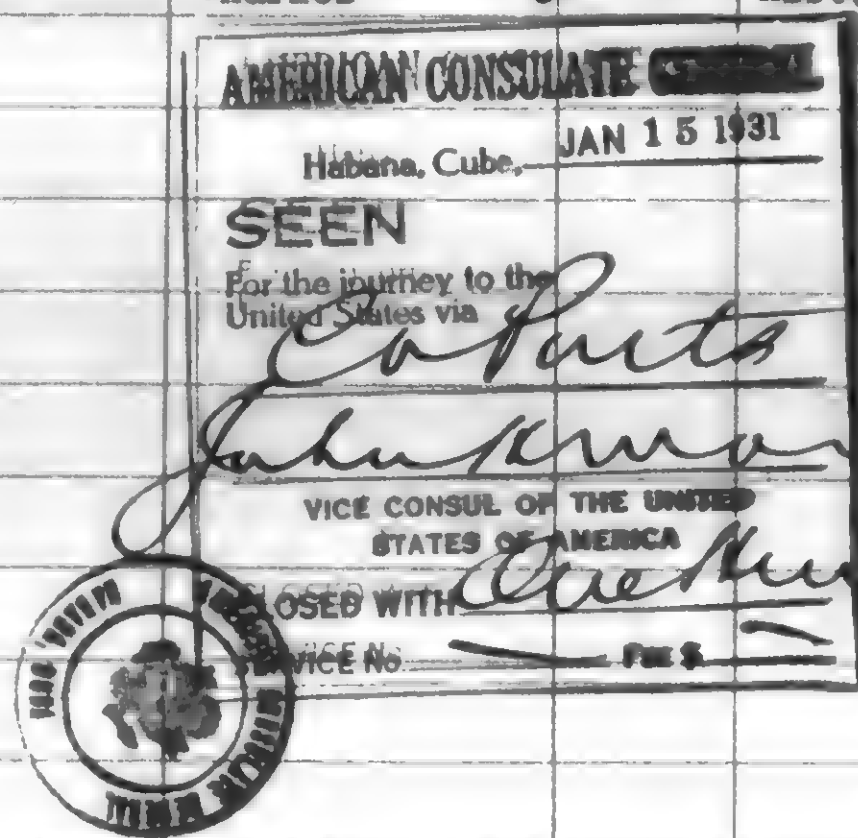 AMERICAN CONSULATE
Habana, Cuba, JAN 15 1931
SEEN
For the journey to the
United States via
Co Ports
John
VICE CONSUL OF THE UNITED
STATES OF AMERICA
CLOSED WITH One
SERVICE No. Fee $